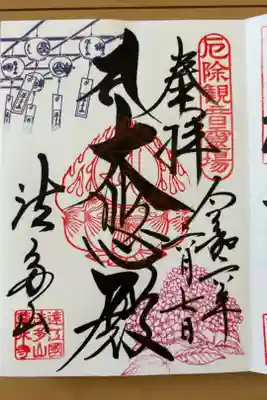 厄除観音霊場
奉拝
令和 年
月七日
大悲殿
法多山
遠江國
法多山
尊永寺